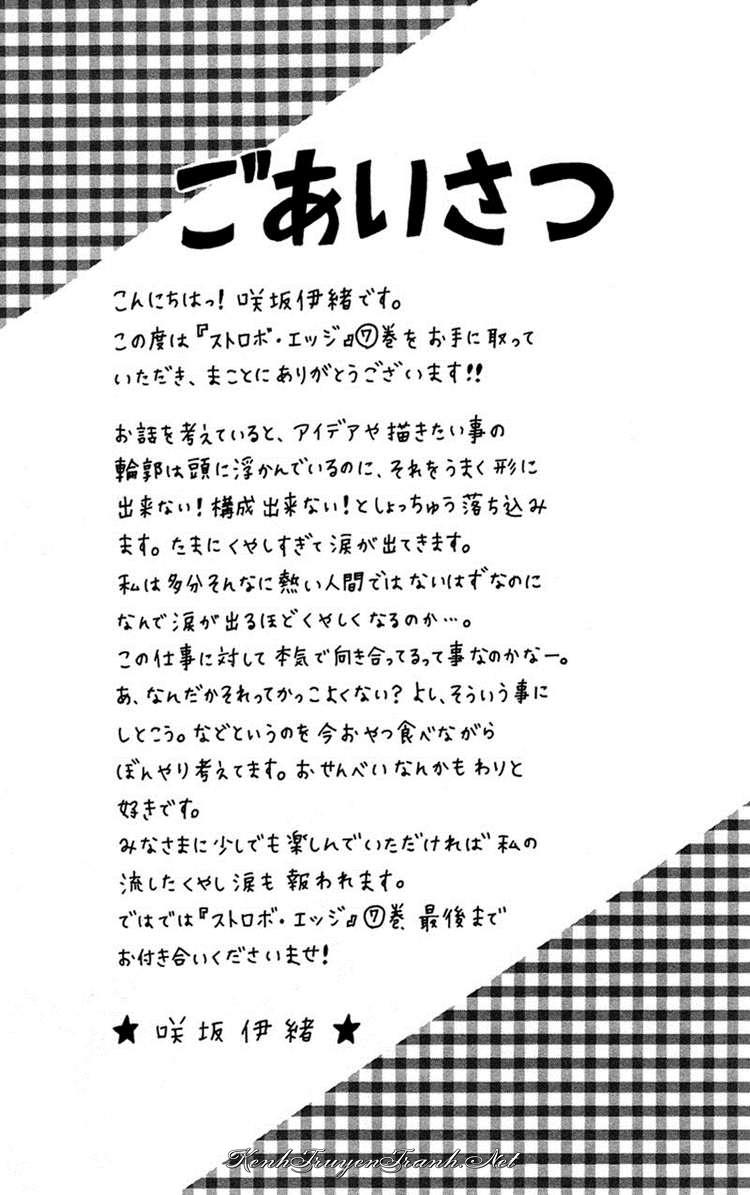 ごあいさつ
こんにちはっ!咲坂伊緒です。
この度は『ストロボ・エッジ』⑦巻をお手に取って
いただき、まことにありがとうございます!!
お話を考えていると、アイデアや描きたい事の
輪郭は頭に浮かんでいるのに、それをうまく形に
出来ない!構成出来ない!としょっちゅう落ち込み
ます。たまにくやしすぎて涙が出てきます。
私は多分そんなに熱い人間ではないはずなのに
なんで涙が出るほどくやしくなるのか…。
この仕事に対して本気で向き合ってるって事なのかなー。
あ、なんだかそれってかっこよくない?よし、そういう事に
しとこう。などというのを今おやつ食べながら
ぼんやり考えてます。おせんべいなんかもわりと
好きです。
みなさまに少しでも楽しんでいただければ私の
流したくやし涙も報われます。
ではでは『ストロボ・エッジ』⑦巻、最後まで
お付き合いくださいませ!
★ 咲坂伊緒 ★
KenhTruyenTranh.Net